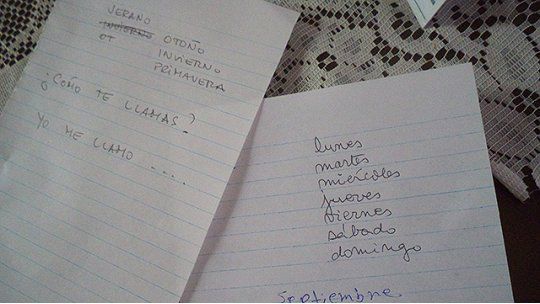 VERANO
INVIERNO OTOÑO
OT INVIERNO
PRIMAVERA
¿CÓMO TE LLAMAS?
YO ME LLAMO ....
lunes
martes
miércoles
jueves
viernes
sábado
domingo
Septiembre